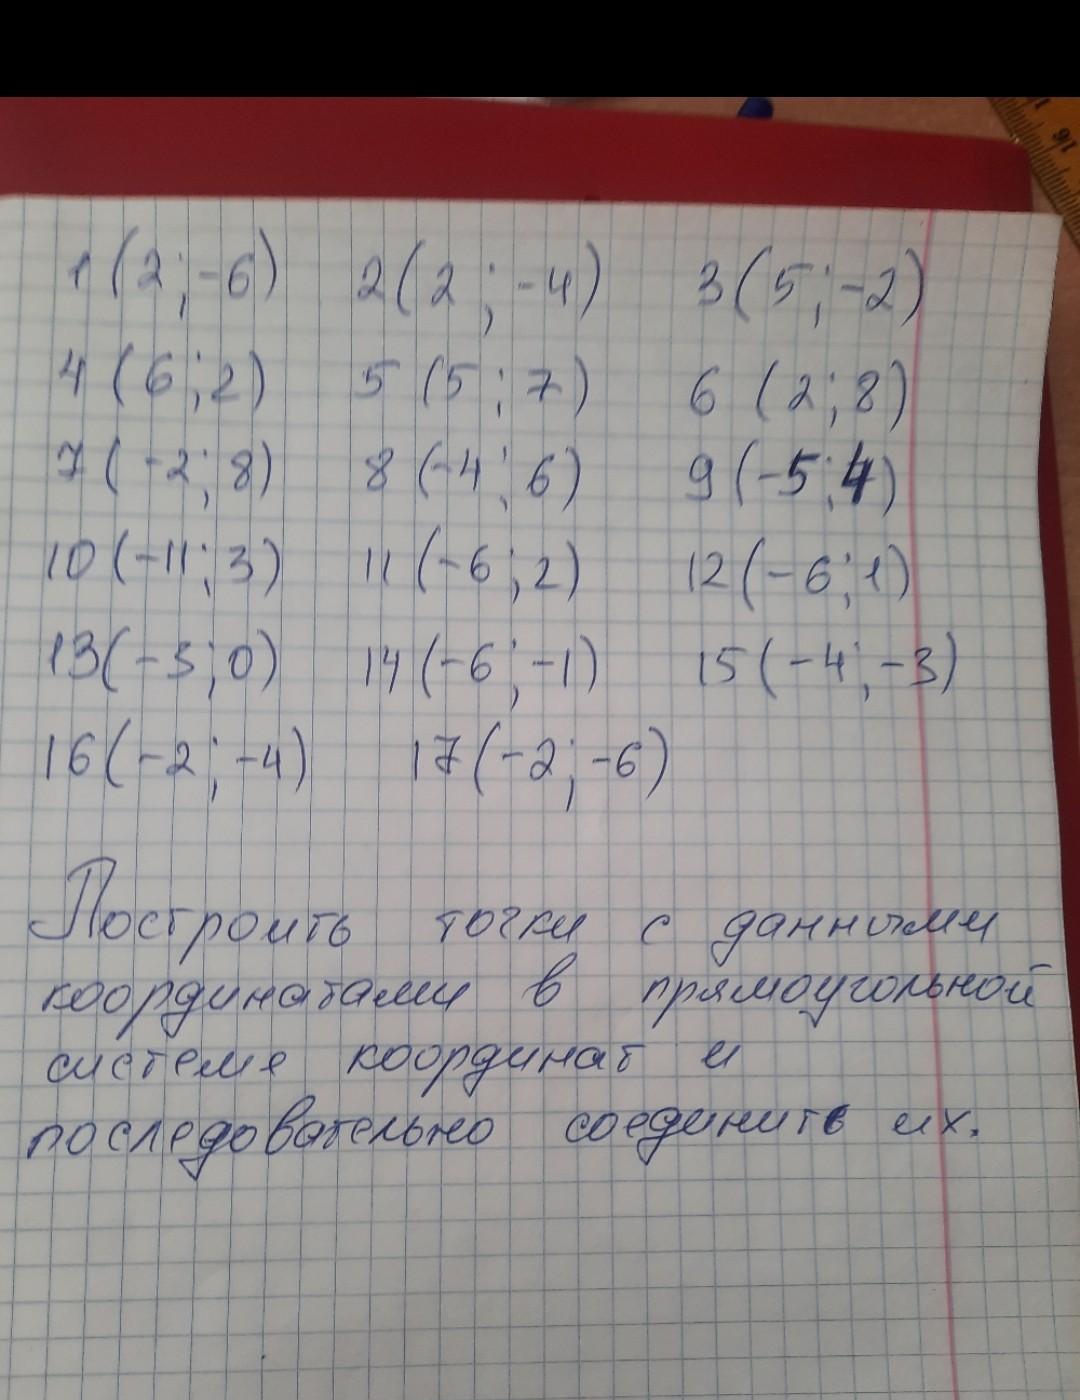 1 (2;-6) 2 (2;-4) 3 (5;-2)
4 (6;2) 5 (5;7) 6 (2;8)
7 (-2;8) 8 (-4;6) 9 (-5;4)
10 (-11;3) 11 (-6;2) 12 (-6;1)
13 (-3;0) 14 (-6;-1) 15 (-4;-3)
16 (-2;-4) 17 (-2;-6)
Построить точки с данными
координатами в прямоугольной
системе координат и
последовательно соединить их.